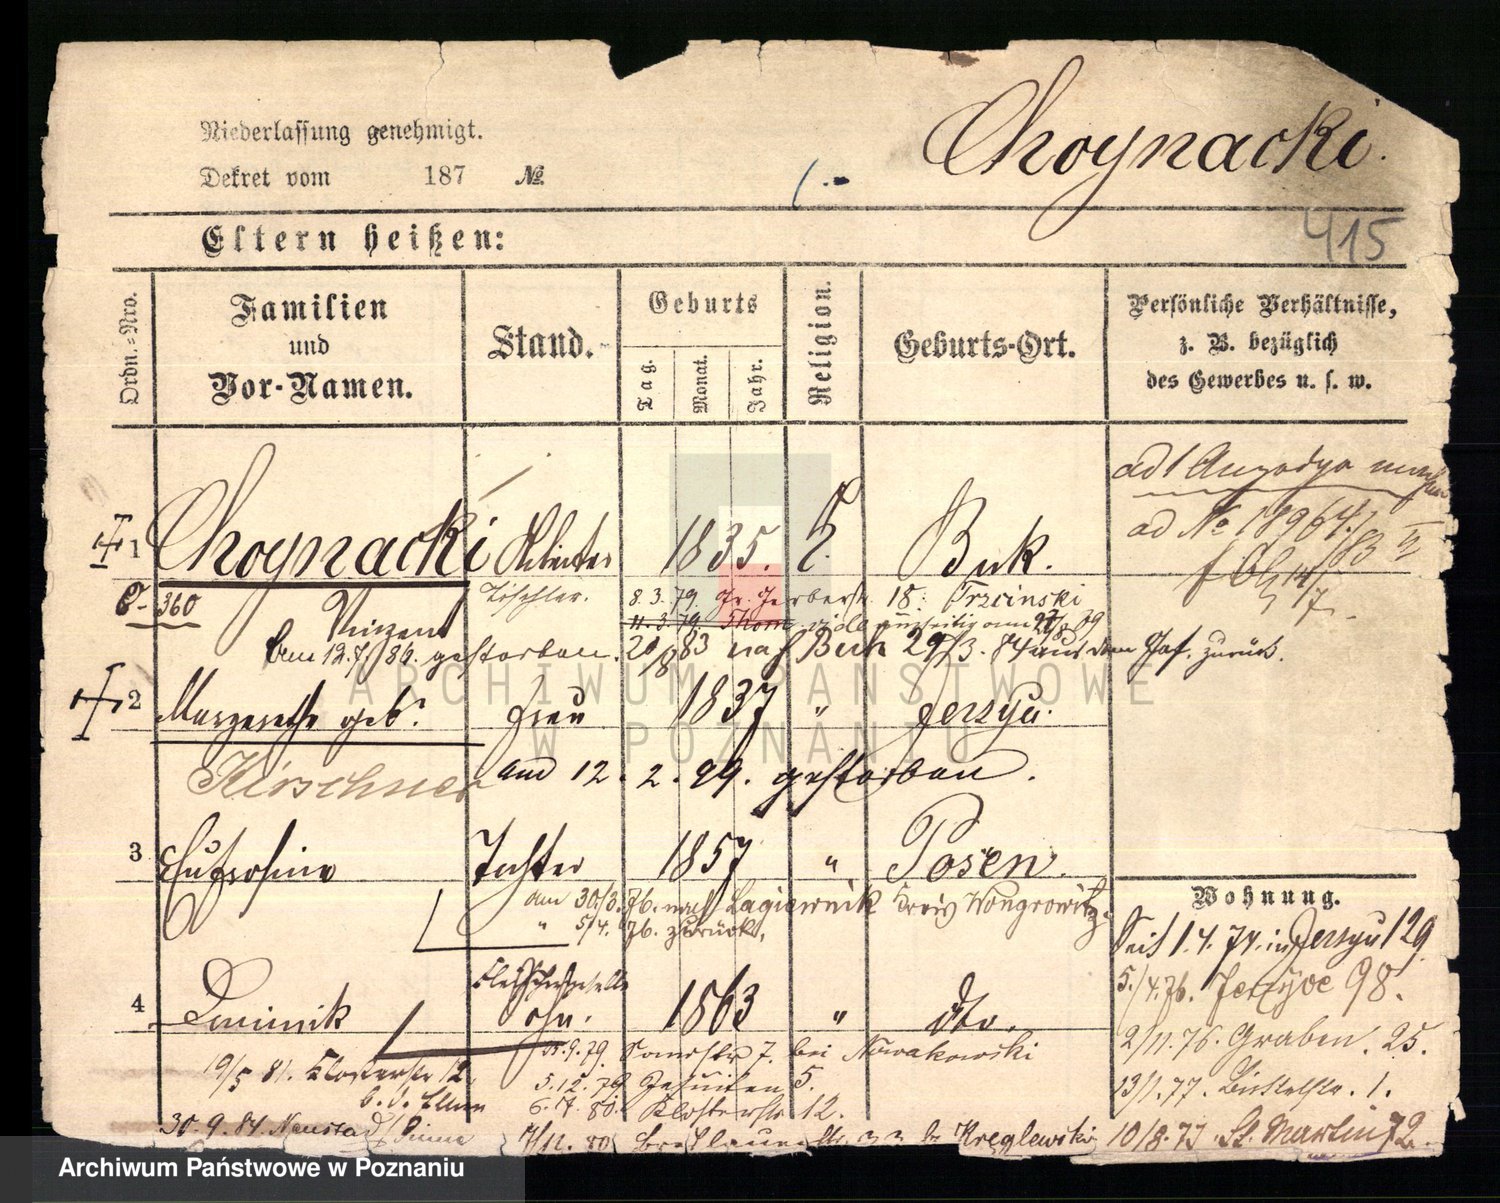 Niederlassung genehmigt.
Choynacki.
Dekret vom 187 №
415
Eltern heißen:
Ordn.-Nro.
Familien
und
Vor-Namen.
Stand.
Geburts
Tag.
Monat.
Jahr.
Religion.
Geburts-Ort.
Persönliche Verhältnisse,
z. B. bezüglich
des Gewerbes u. s. w.
ad 1
ad No 18964/83 II
14/7
1 Choynacki Arbeiter 1835. Buk.
C-360
Tischler.
8.3.79. Gr. Gerberstr. 18. Trzcinski
Vinzent
11.3.79. Thorn
am 12.7.89. gestorben. 20/8 83 nach Buk 29/3. 84 aus dem Gef. zurück.
2 Margarethe geb. Frau 1837 " Jerzyce.
Kirschner am 12.2.99. gestorben.
3 Eufrosine Tochter 1857 " Posen.
am 30/3. 76. nach Lagiewnik Kreis Wongrowitz.
" 5/4. 76. zurück.
Fleischergeselle
4 Dominik Sohn. 1863 " dto.
15.9.79. 7. bei Nowakowski
19/5 81. Klosterstr 12.
b. d. Eltern
5.12.79 Jesuiten 5.
6.7.80. Klosterstr. 12.
30.9.84. Neustadt Pinne
17/12.80 Breslauerstr b. Kreglewski
Wohnung.
Seit 1.4.74. in Jerzyce 129
5./4.76. Jerzyce 98.
2/11.76. Graben. 25.
13/1.77. 1.
10/8.77. St. Martin 72.
ARCHIWUM PAŃSTWOWE
W POZNANIU
Archiwum Państwowe w Poznaniu